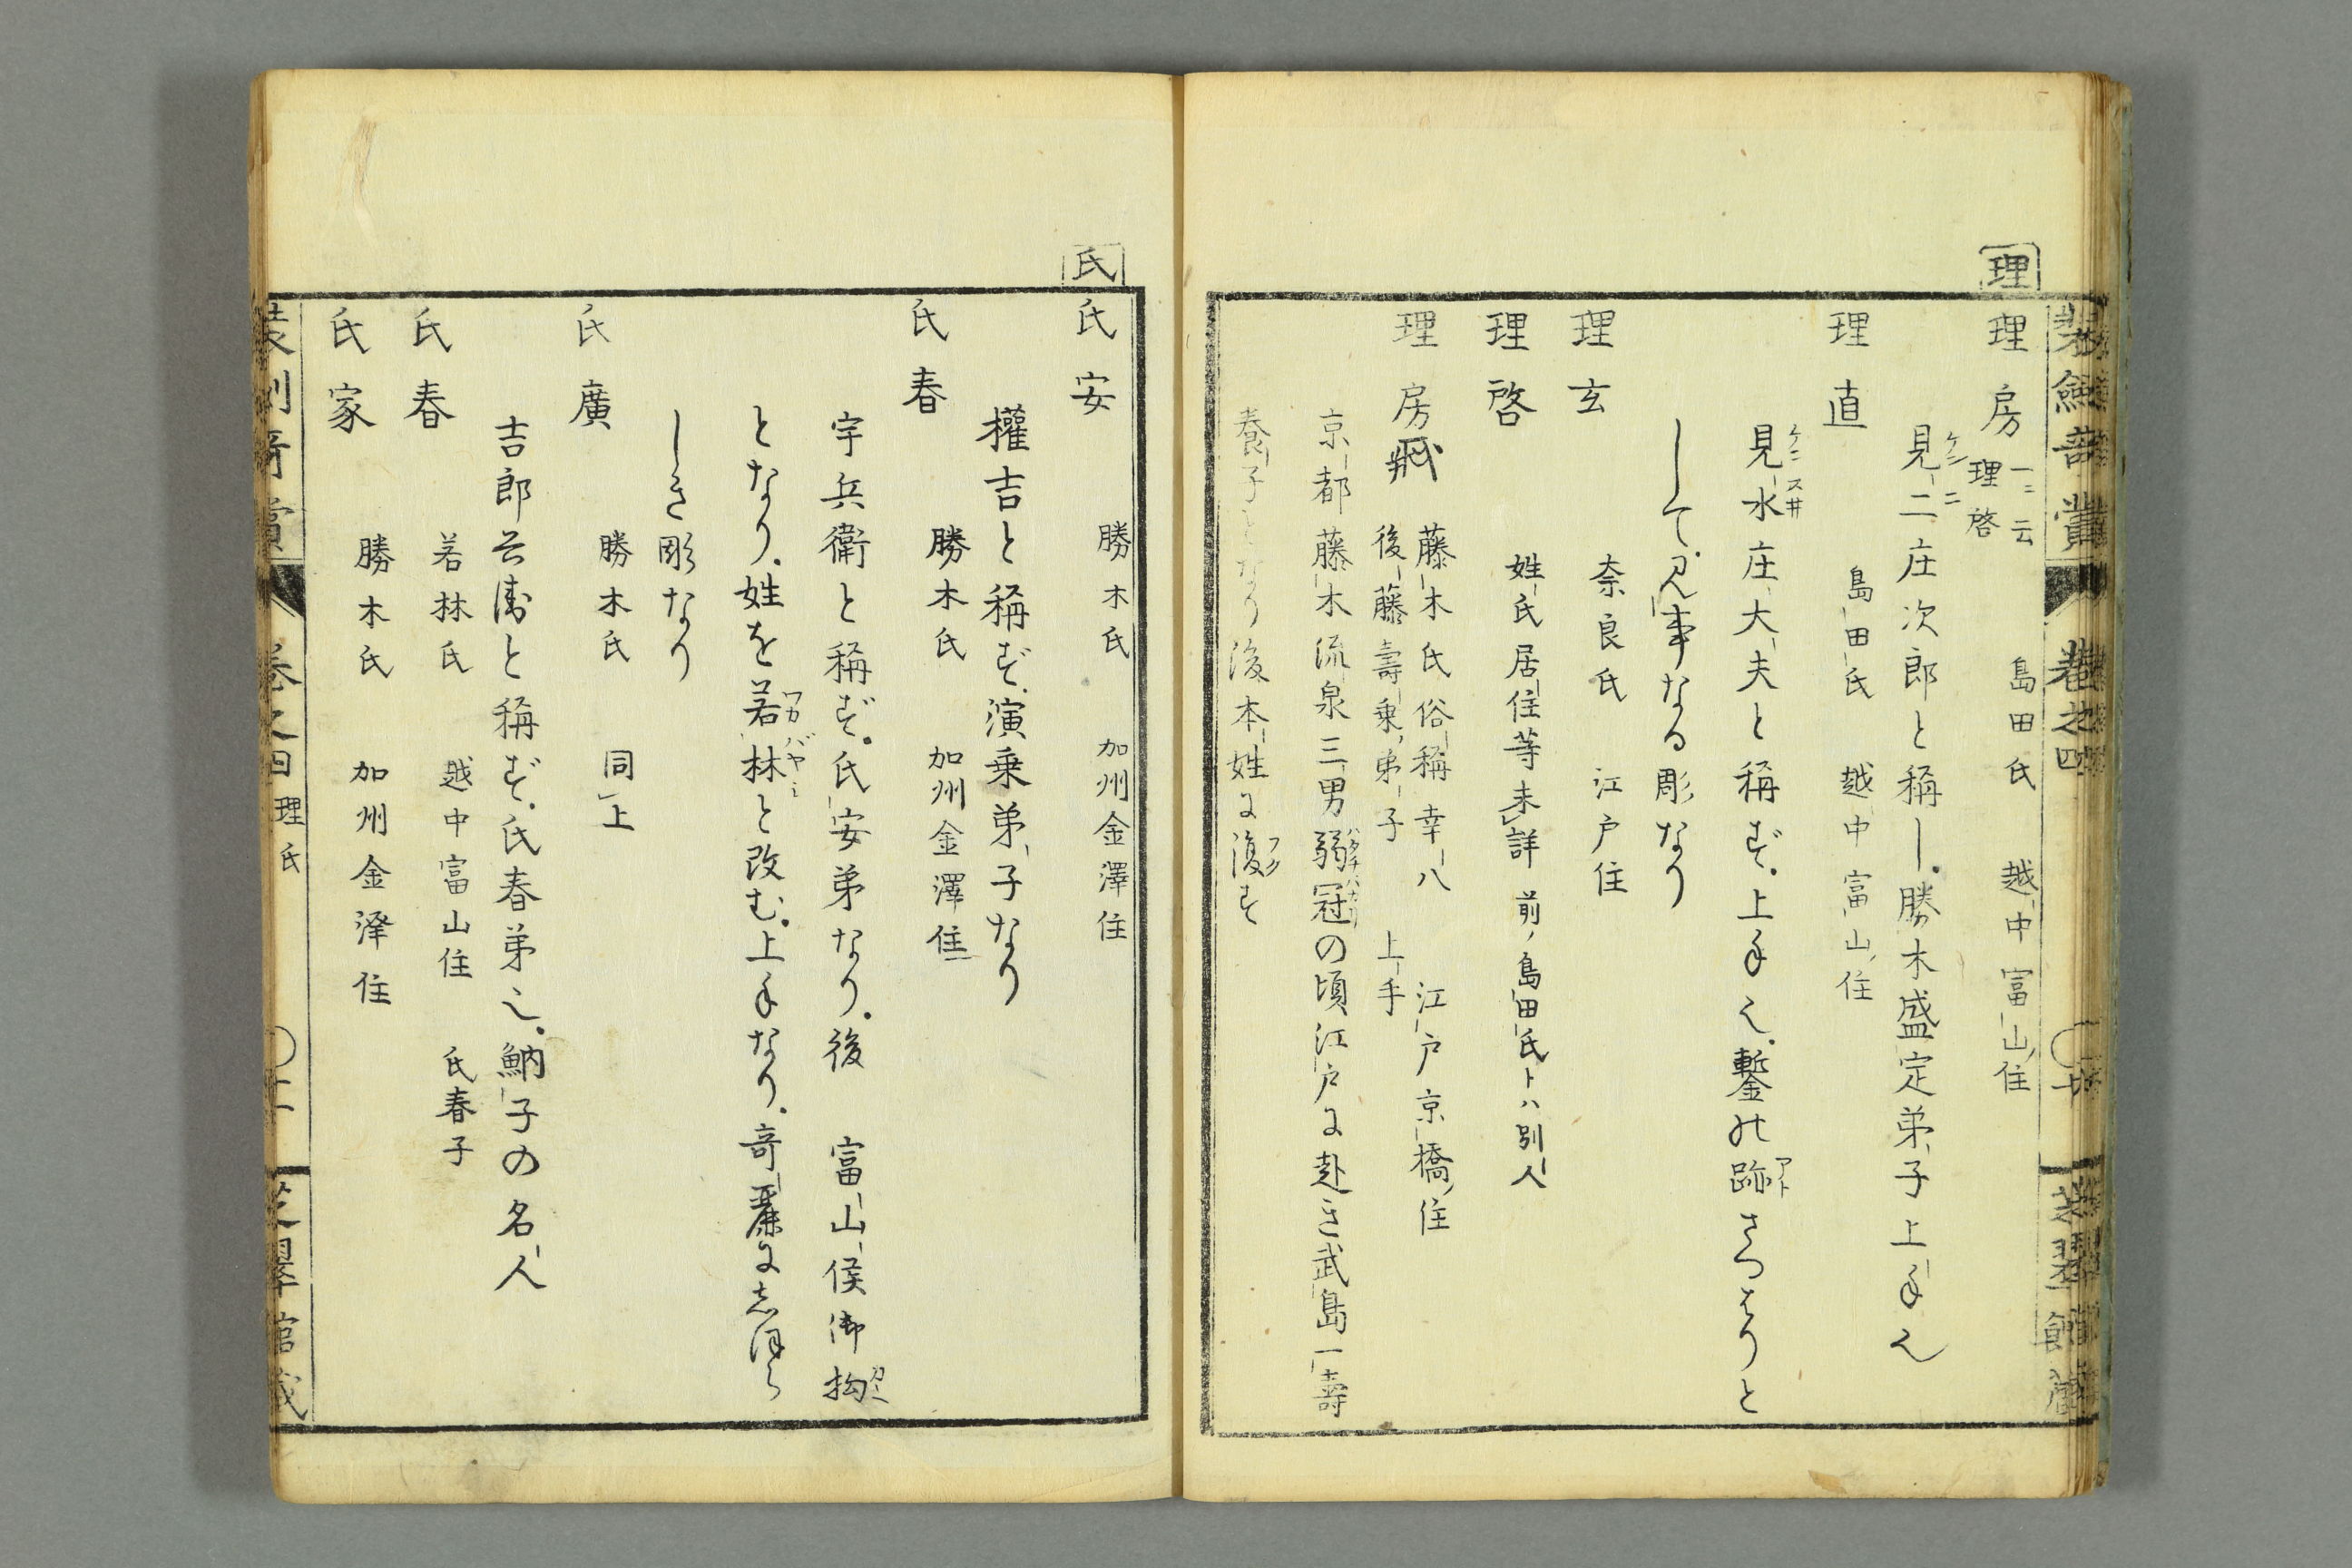 理
理房 一ニ云理啓 島田氏 越中富山住
見二庄次郎と称し。勝木盛定弟子上手也
理直 島田氏 越中富山住
見水庄大夫と稱ず。上手也。鏨の跡さつはりと
して。見事なる彫なり
理玄 奈良氏 江戸住
理啓 姓氏居住等未詳 前ノ島田氏トハ別人
理房 藤木氏俗稱幸八 江戸京橋住
後藤壽乗弟子 上手
京都藤木流泉三男弱冠の頃江戸に赴き武島一壽
養子となり後本姓に復す
氏
氏安 勝木氏 加州金澤住
權吉と稱ず。演乗弟子なり
氏春 勝木氏 加州金澤住
宇兵衞と稱ず。氏安弟なり。後 富山侯御抱
となり。姓を若林と改む。上手なり。奇麗にしほら
しき彫なり
氏廣 勝木氏 同上
吉郎兵衛と稱ず。氏春弟也。魶子の名人
氏春 若林氏 越中富山住 氏春子
氏家 勝木氏 加州金澤住
卷之四 理氏